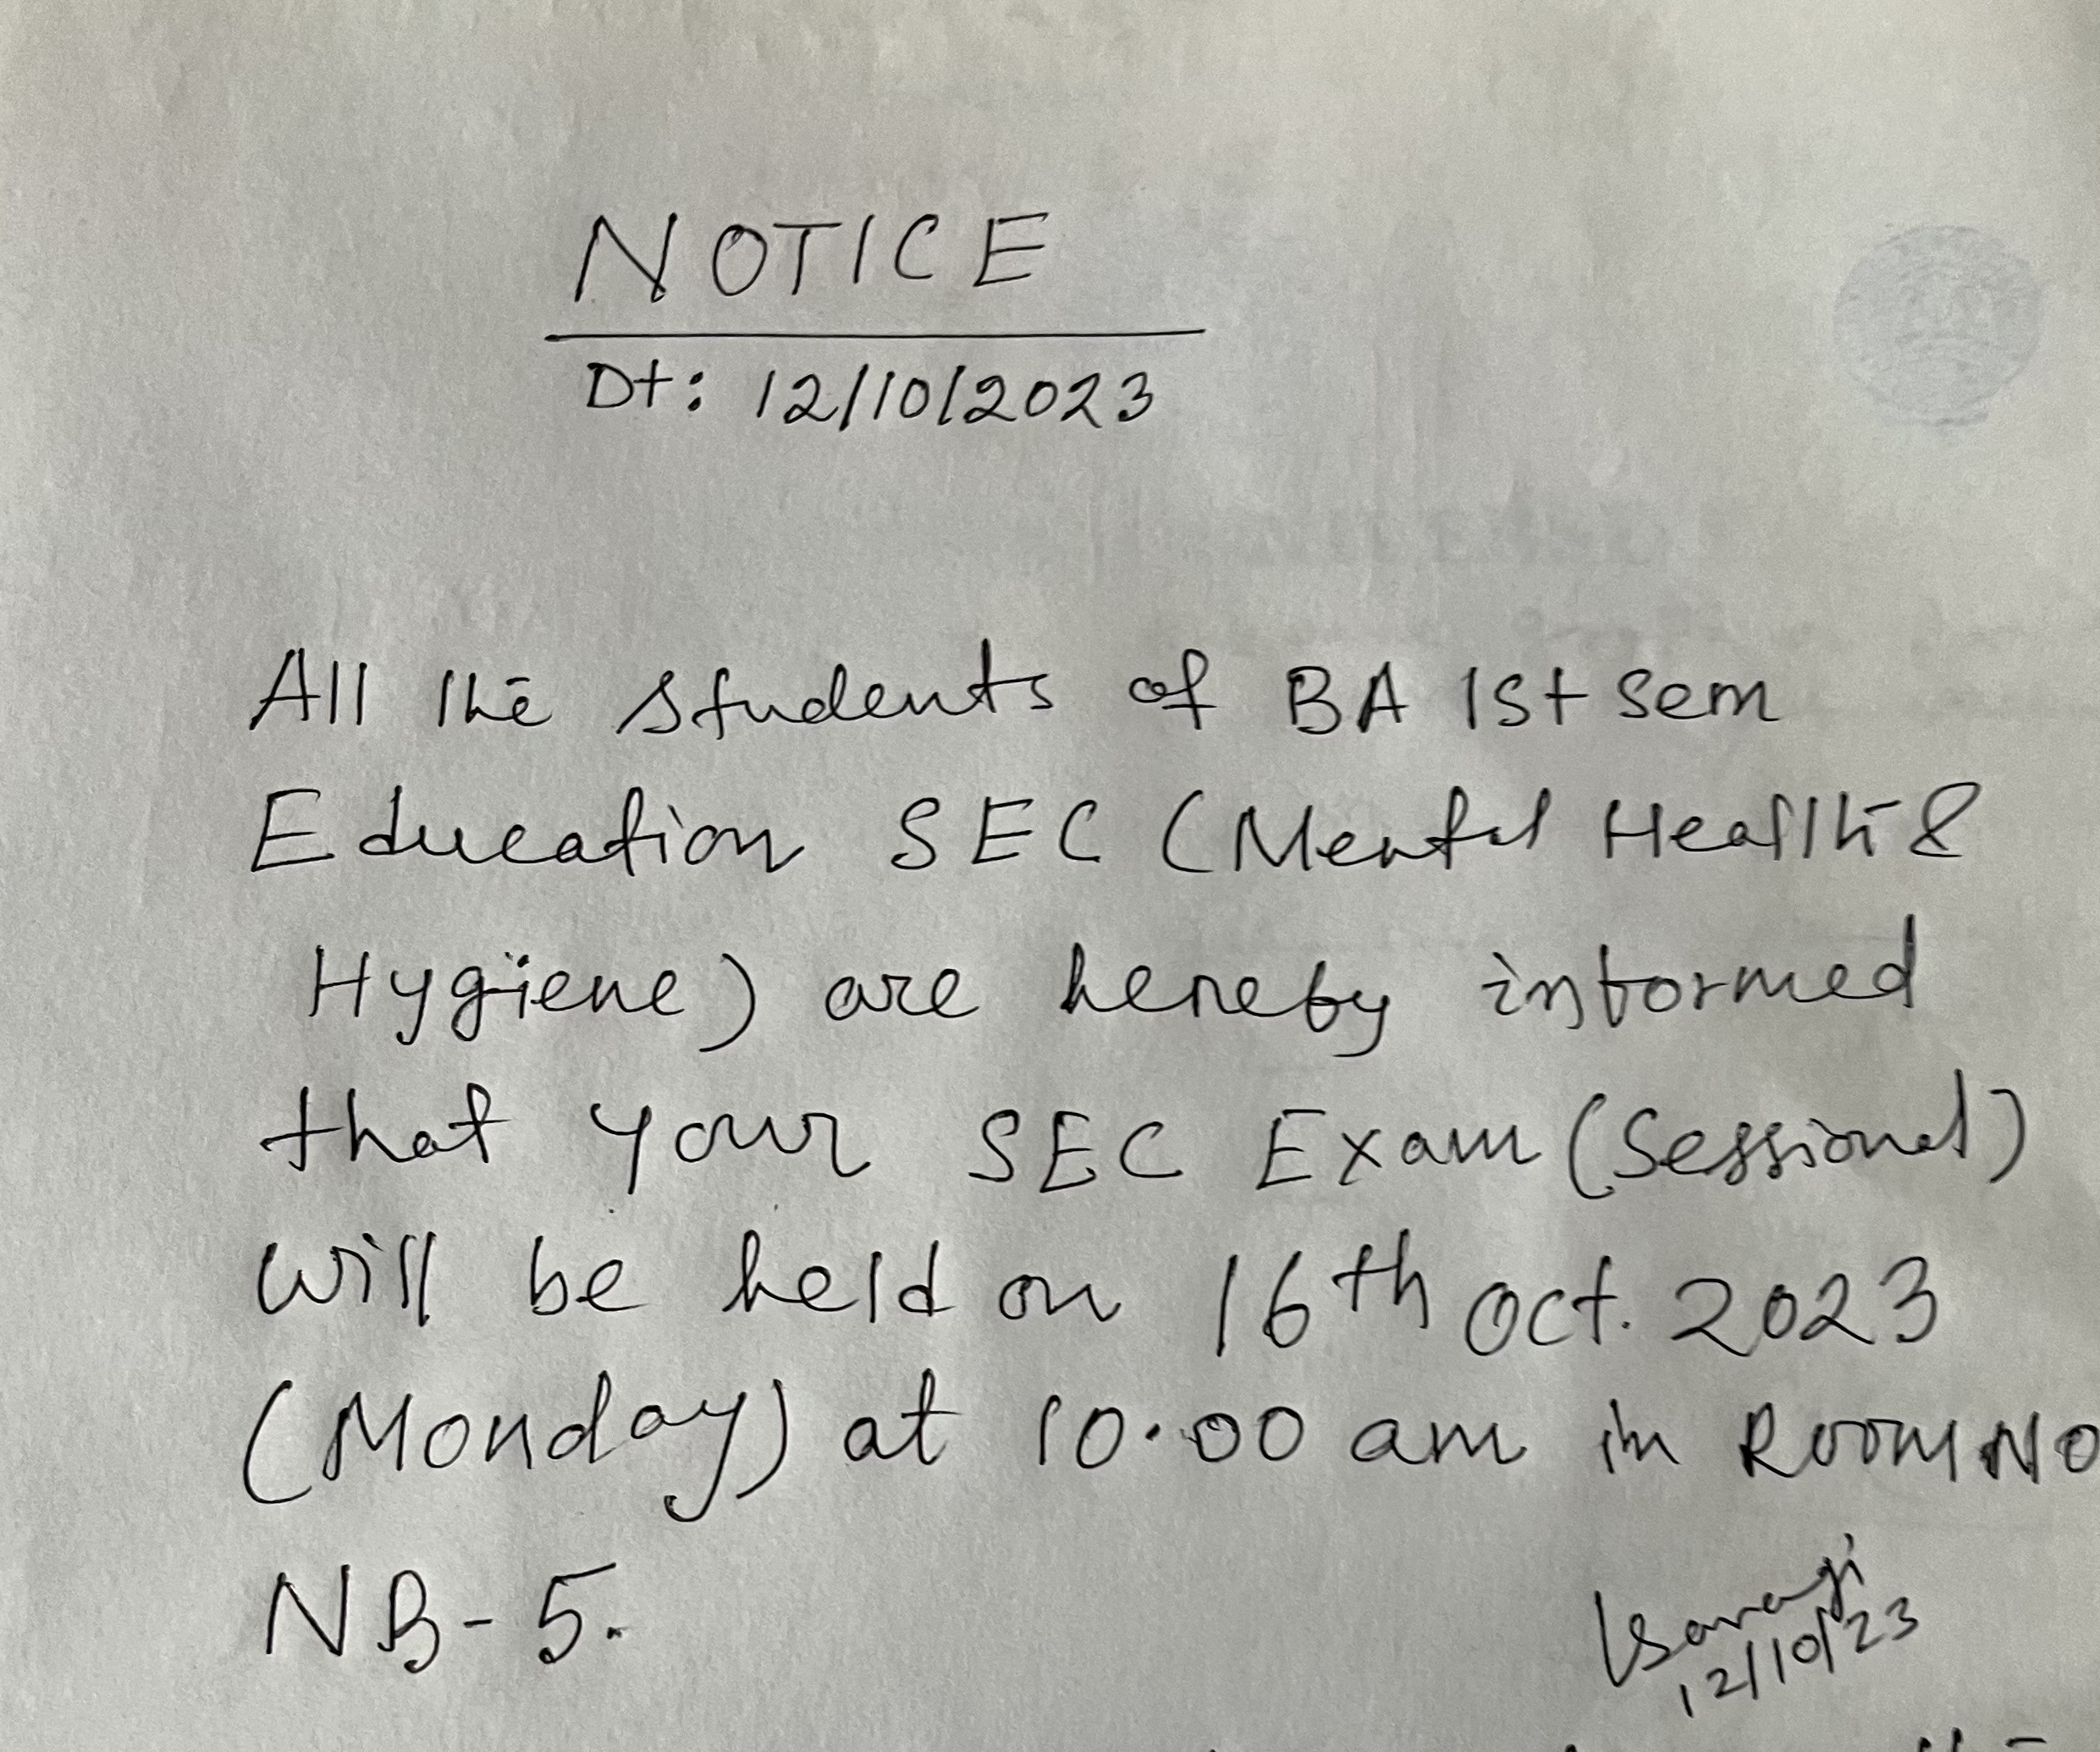 NOTICE
Dt: 12/10/2023
All the students of BA 1st sem
Education SEC (Mental Health &
Hygiene) are hereby informed
that your SEC Exam (Sessional)
will be held on 16th Oct. 2023
(Monday) at 10.00 am in Room No
NB-5.
12/10/23